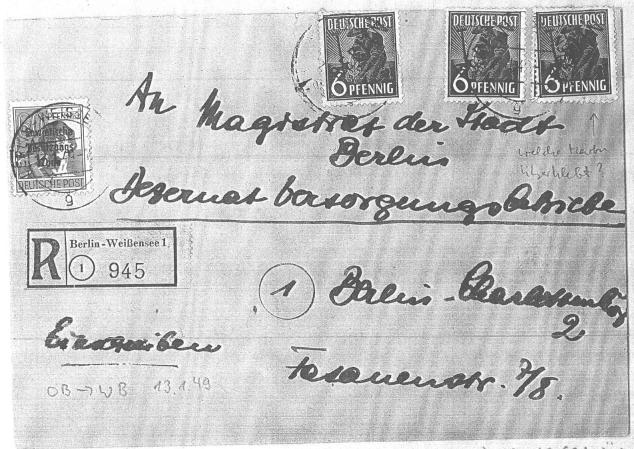 DEUTSCHE POST DEUTSCHE POST DEUTSCHE POST
6 PFENNIG 6 PFENNIG 6 PFENNIG
PFENNIG
Sowjetische
Besatzungs
Zone
DEUTSCHE POST
9
9
An
Magistrat der Stadt
Berlin
welche Marken
überklebt?
Dezernat Versorgungsbetriebe
R Berlin-Weißensee 1
1 945
1 Berlin-Charlottenburg
2
Einschreiben
Fasanenstr. 7/8.
OB → WB 13.1.49